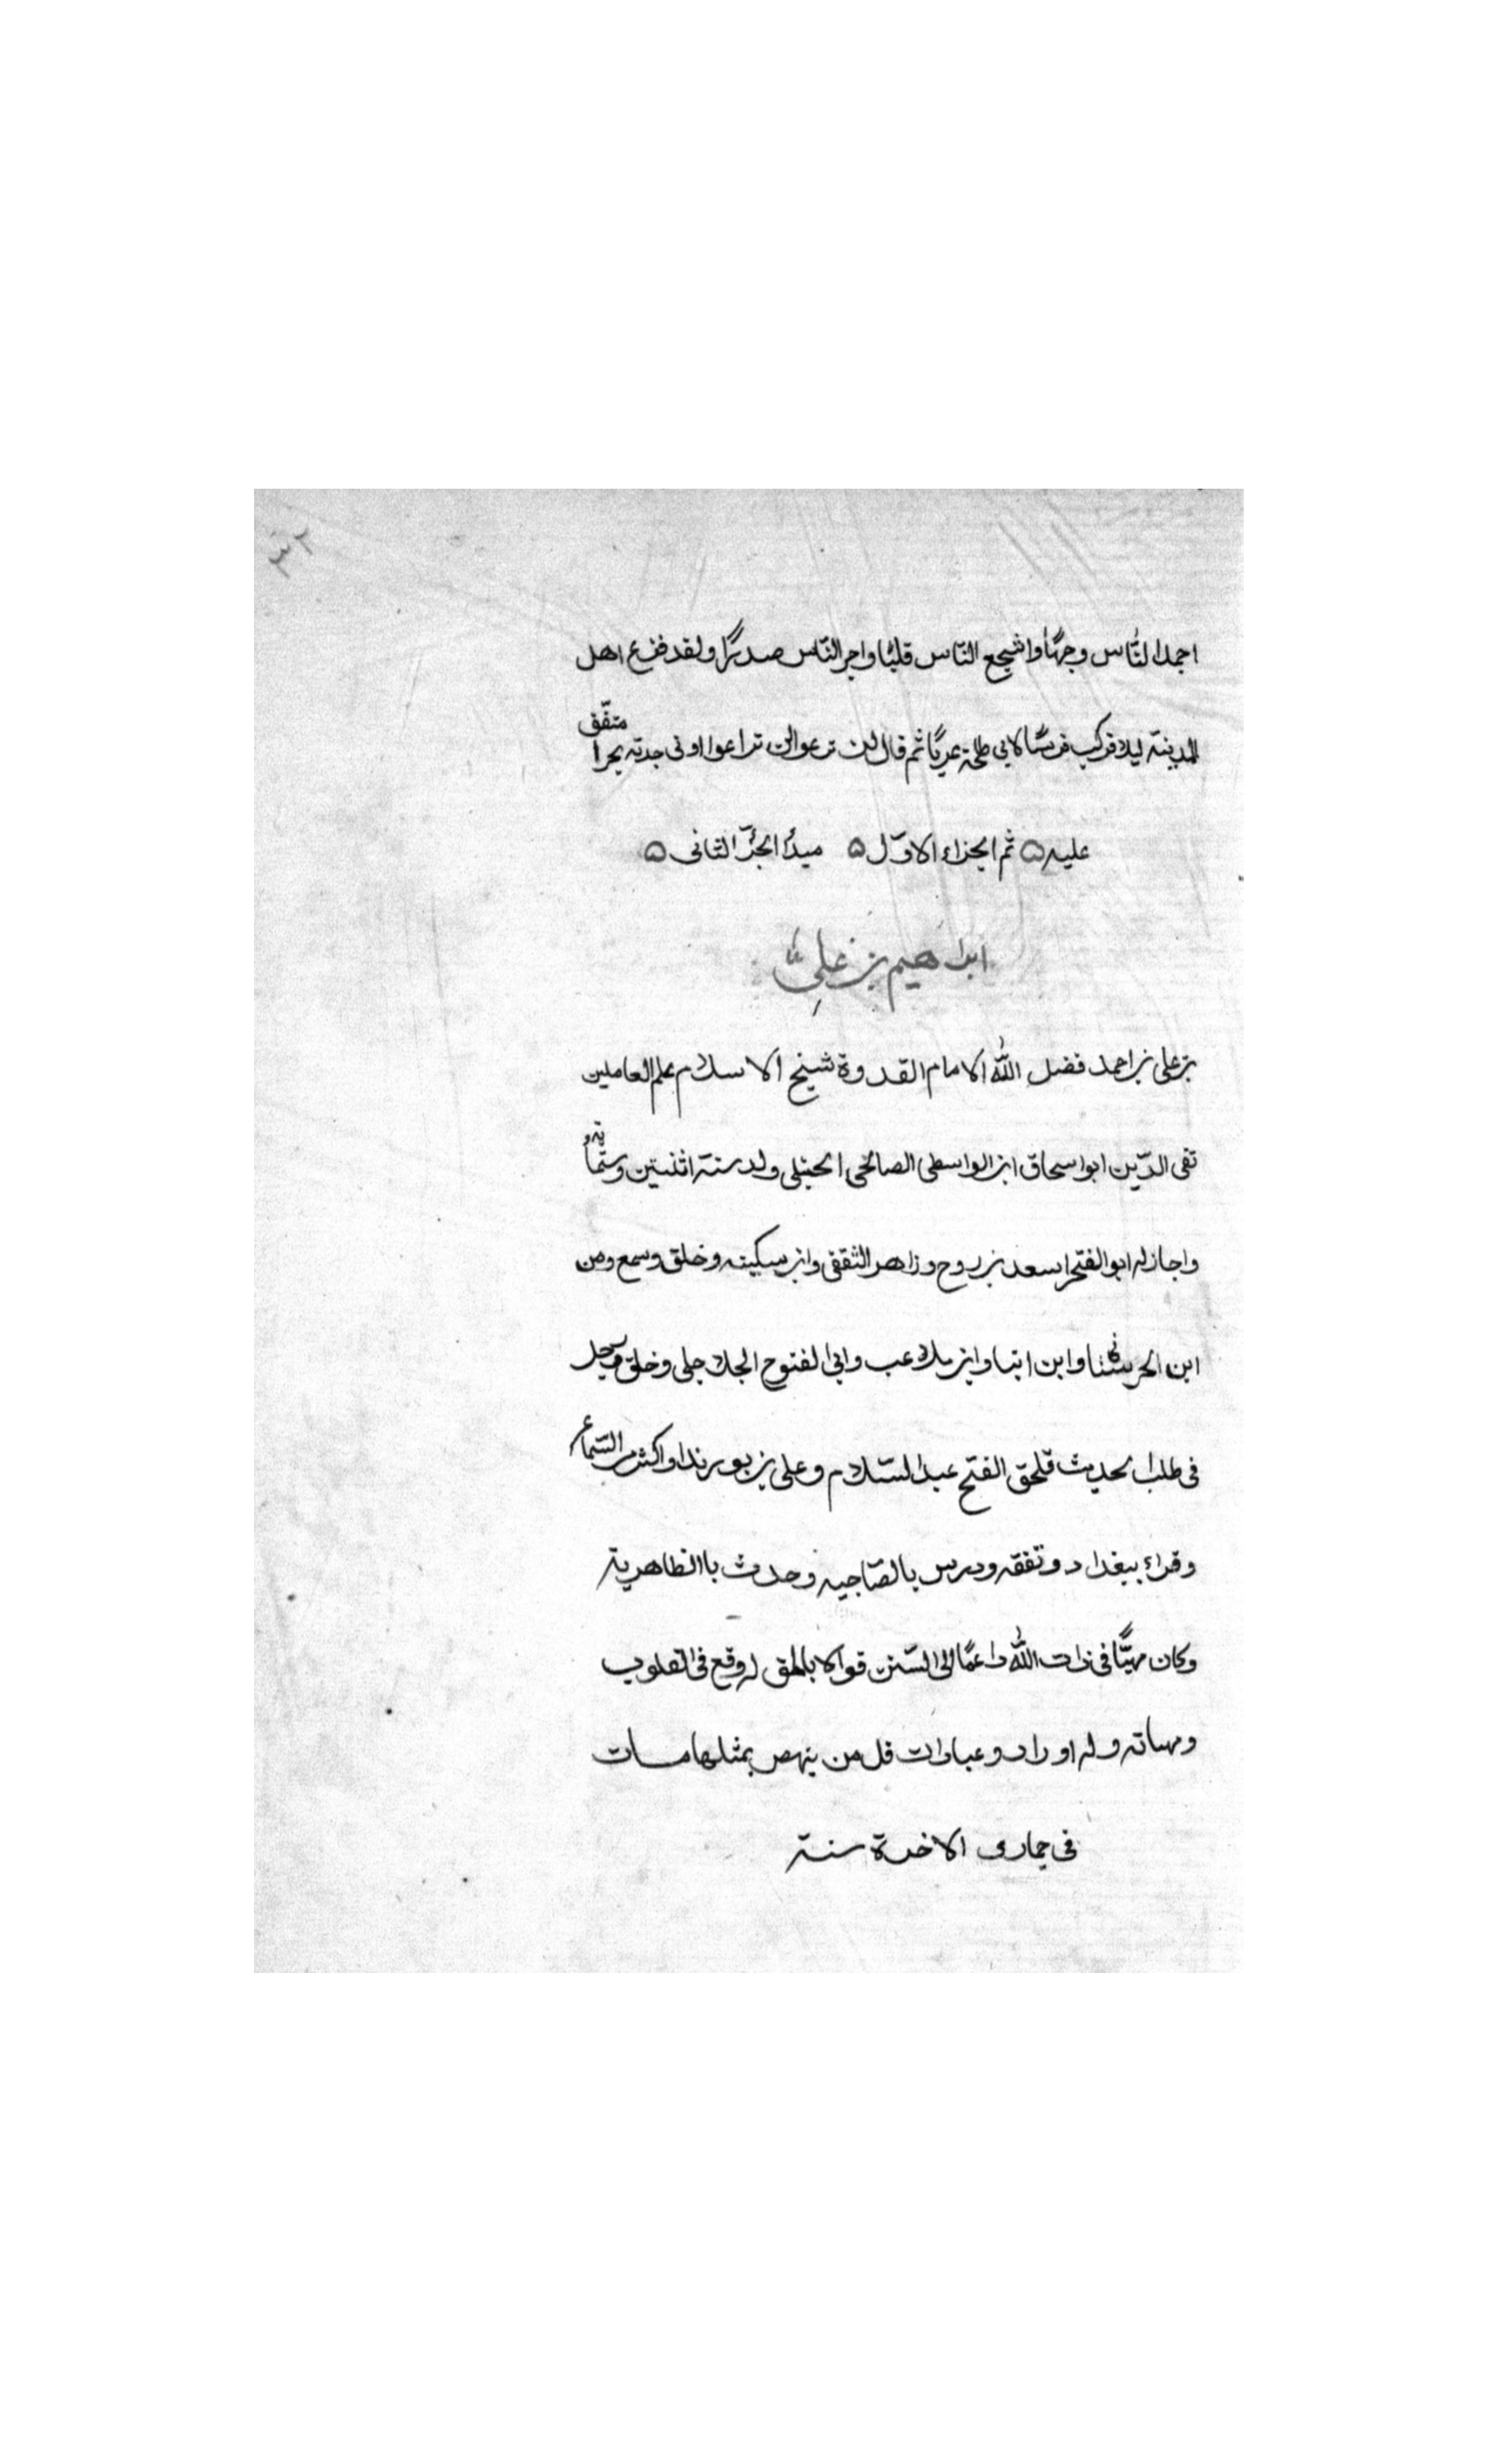 ٣٢
اجمل الناس وجهًا واشجع الناس قلبًا واجر الناس صدرًا ولقد فزع اهل
المدينة ليلا فركب فرسًا لابي طلحة عريًا ثم قال لن ترعوا لن تراعوا اونى جدته بحرا متّفق
عليه ۵ ثم الجزاء الاوّل ۵ مبدأ الجزّ الثانى ۵
ابراهيم بن على
بن على بن احمد فضل الله الامام القدوة شيخ الاسلام علم العاملين
تقى الدّين ابو اسحاق ابن الواسطى الصالحى الحنبلى ولد سنة اثنتين وستمائة
واجاز له ابو الفتح اسعد بن روح وزاهر الثقفى وابن سكينه وخلق وسمع ومن
ابن الحرستانى وابن ابنا وابن ملاعب وابى الفتوح الجلاجلى وخلق ورحل
فى طلب الحديث فلحق الفتح عبد السّلام وعلى بن بورندا واكثر من السّماع
وقراء ببغداد وتفقه ودرس بالصّاجيه وحدث باالظاهرية
وكان مهيبًا فى ذات الله داعيًا الى السّنن قوالا بالحق له وقع فى القلوب
وله اوراد وعبادات قل من ينهض بمثلها مات
فى جمادى الاخرة سنة